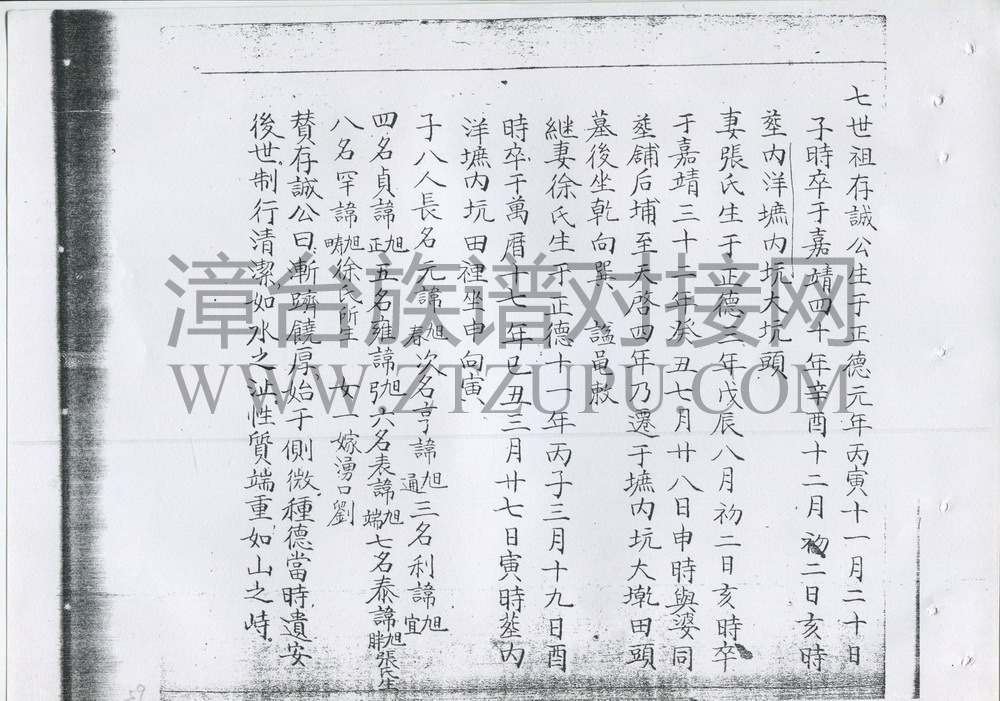 七世祖存誠公生于正德元年丙寅十一月二十日
子時卒于嘉靖四十年辛酉十二月初二日亥時
塟内洋墌内坑大坑頭
妻張氏生于正德三年戊辰八月初二日亥時卒
于嘉靖三十二年癸丑七月廿八日申時與婆同
塟舖后埔至天啓四年乃遷于墌内坑大墘田頭
墓後坐乾向巽 諡黽敕
継妻徐氏生于正德十一年丙子三月十九日酉
時卒于萬曆十七年己丑三月廿七日寅時塟内
洋墌内坑田裡坐申向寅
子八人長名元諱旭春次名亨諱旭通三名利諱旭宜
四名貞諱旭正五名雍諱旭弘六名表諱旭端七名泰諱旭張氏生
八名罕諱旭疇徐氏所生 女一嫁湧口劉
賛存誠公曰漸躋饒厚始于側微種德當時遺安
後世制行清潔如水之沚性質端重如山之峙
漳台族谱对接网
WWW.ZTZUPU.COM